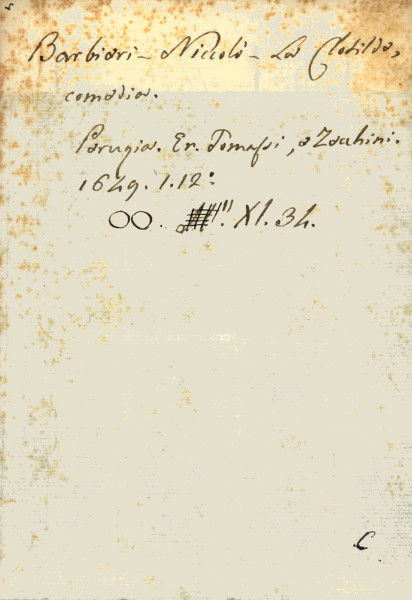 Barbieri - Niccolò - La Clotilda,
comedia.
Perugia. Er. Tomassi, e Zecchini.
1649. 1. 12º
OO. XI. 34.
C